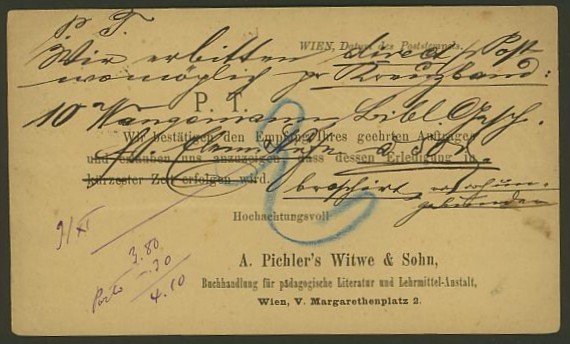 P. T.
WIEN, Datum des Poststempels.
Wir erbitten direct Post
womöglich pr Kreuzband:
P. T.
10 Wangemann, Bibl. Gesch.
Wir bestätigen den Empfang Ihres geehrten Auftrages
und erlauben uns anzuzeigen, dass dessen Erledigung in
kürzester Zeit erfolgen wird.
broschirt,
gebunden
Hochachtungsvoll
9/XI
3.80
Porto -.30
4.10
A. Pichler's Witwe & Sohn,
Buchhandlung für pädagogische Literatur und Lehrmittel-Anstalt,
Wien, V. Margarethenplatz 2.